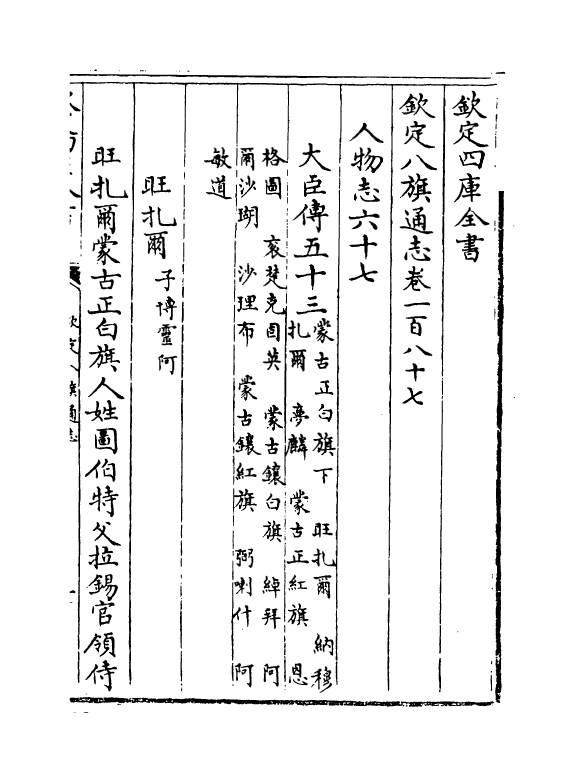 欽定四庫全書
欽定八旗通志卷一百八十七
人物志六十七
大臣傳五十三
蒙古正白旗下 旺扎爾 納穆
扎爾 夢麟 蒙古正紅旗 恩
格圖 袞楚克固英 蒙古鑲白旗 綽拜 阿
爾沙瑚 沙理布 蒙古鑲紅旗 弼喇什 阿
敏道
旺扎爾 子博靈阿
旺扎爾蒙古正白旗人姓圖伯特父拉錫官領侍
欽定八旗通志